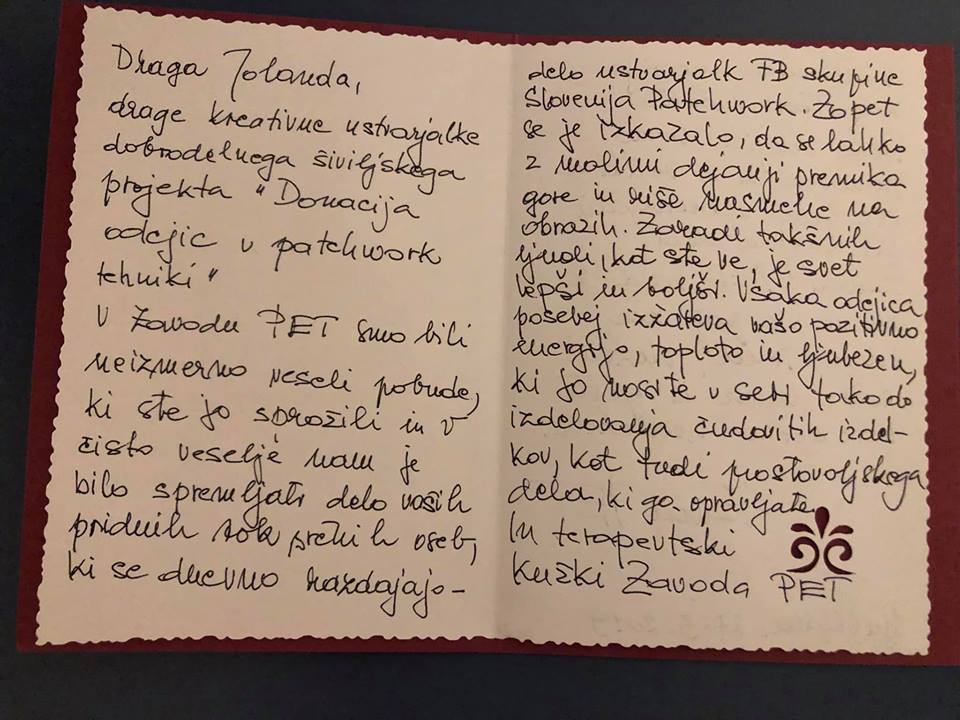 Draga Jolanda,
drage kreativne ustvarjalke
dobrodelnega šiviljskega
projekta "Donacija
odejic v patchwork
tehniki"
V Zavodu PET smo bili
neizmerno veseli pobude,
ki ste jo sprožili in v
čisto veselje nam je
bilo spremljati delo vaših
pridnih rok prežih oseb,
ki se dnevno razdajajo-
delo ustvarjalk FB skupine
Slovenija Patchwork. Zopet
se je izkazalo, da se lahko
z malimi dejanji premika
gore in riše nasmehe na
obrazih. Zaradi takšnih
ljudi, kot ste ve, je svet
lepši in boljši. Vsaka odejica
posebej izžareva vašo pozitivno
energijo, toploto in ljubezen,
ki jo nosite v sebi tako do
izdelovanja čudovitih izdel-
kov, kot tudi prostovoljskega
dela, ki ga opravljate.
In terapevtski
kužki Zavoda PET